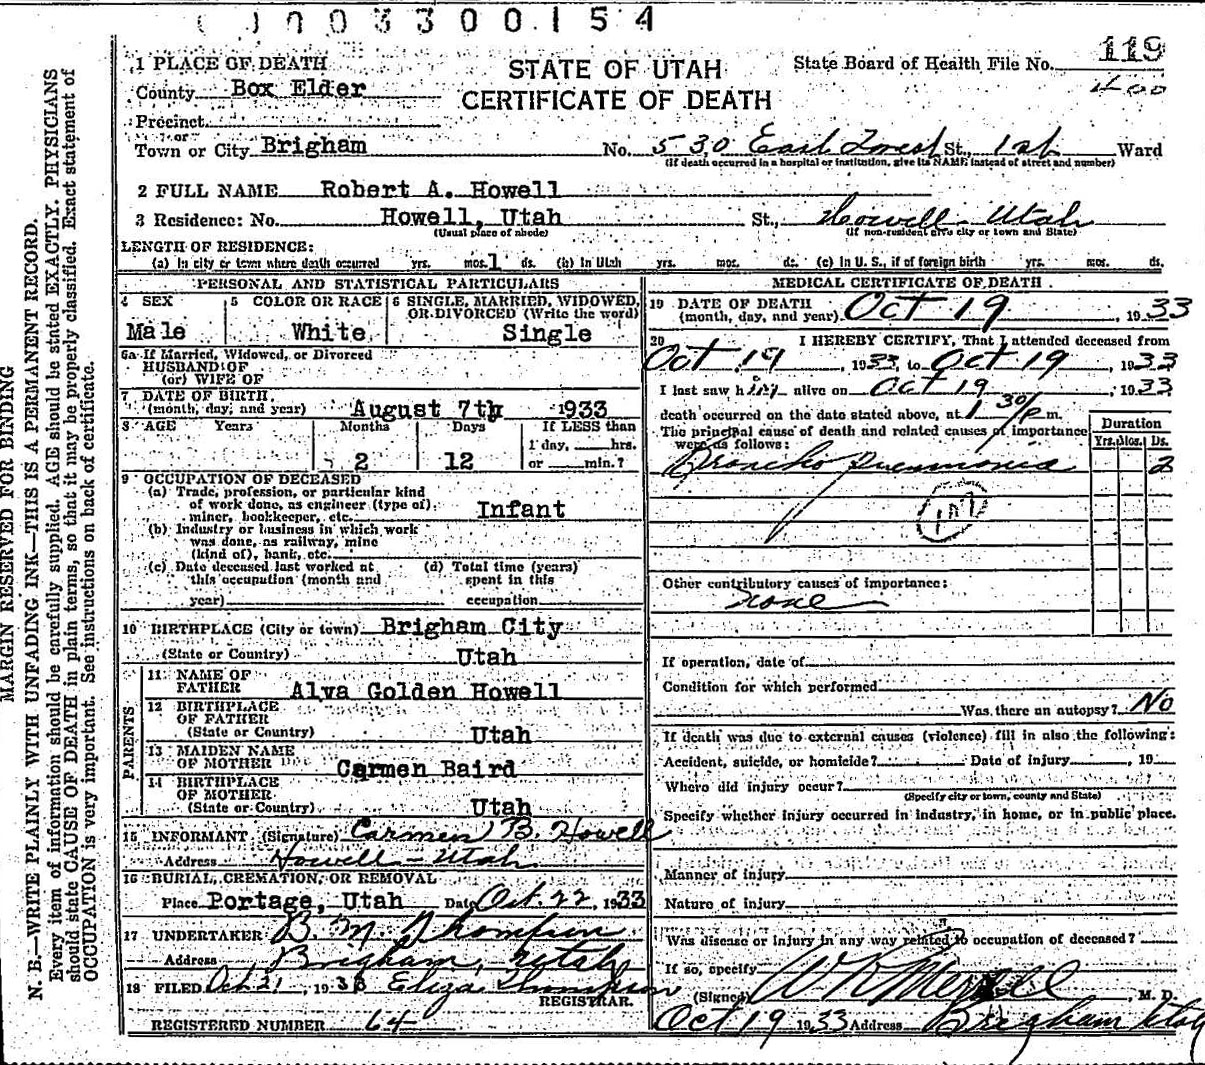 003300154
119
400
1 PLACE OF DEATH
County Box Elder
Precinct
or
Town or City Brigham
STATE OF UTAH
CERTIFICATE OF DEATH
State Board of Health File No.
No. 530 East Forest St., 1st Ward
(If death occurred in a hospital or institution, give its NAME instead of street and number)
2 FULL NAME Robert A. Howell
3 Residence: No. Howell, Utah St., Howell - Utah
(Usual place of abode) (If non-resident give city or town and State)
LENGTH OF RESIDENCE:
(a) In city or town where death occurred yrs. mos. 1 ds. (b) In Utah yrs. mos. ds. (c) In U. S., if of foreign birth yrs. mos. ds.
PERSONAL AND STATISTICAL PARTICULARS
4 SEX
Male
5 COLOR OR RACE
White
6 SINGLE, MARRIED, WIDOWED,
OR DIVORCED (Write the word)
Single
6a If Married, Widowed, or Divorced
HUSBAND OF
(or) WIFE OF
7 DATE OF BIRTH
(month, day, and year) August 7th 1933
8 AGE Years Months Days If LESS than
1 day, hrs.
2 12 or min.?
9 OCCUPATION OF DECEASED
(a) Trade, profession, or particular kind
of work done, as engineer (type of),
miner, bookkeeper, etc. Infant
(b) Industry or business in which work
was done, as railway, mine
(kind of), bank, etc.
(c) Date deceased last worked at
this occupation (month and
year)
(d) Total time (years)
spent in this
occupation
10 BIRTHPLACE (City or town) Brigham City
(State or Country) Utah
PARENTS
11 NAME OF
FATHER Alva Golden Howell
12 BIRTHPLACE
OF FATHER
(State or Country) Utah
13 MAIDEN NAME
OF MOTHER Carmen Baird
14 BIRTHPLACE
OF MOTHER
(State or Country) Utah
15 INFORMANT (Signature) Carmen B. Howell
Address Howell - Utah
16 BURIAL, CREMATION, OR REMOVAL
Place Portage, Utah Date Oct. 22, 1933
17 UNDERTAKER B. M. Thompson
Address Brigham, Utah
18 FILED Oct 21, 1933 Eliza Thompson
REGISTRAR.
REGISTERED NUMBER 64
MEDICAL CERTIFICATE OF DEATH
19 DATE OF DEATH
(month, day, and year) Oct 19, 1933
20 I HEREBY CERTIFY, That I attended deceased from
Oct 19, 1933, to Oct 19, 1933
I last saw him alive on Oct 19, 1933
death occurred on the date stated above, at 1 30/P m.
The principal cause of death and related causes of importance
were as follows:
Duration
Yrs. Mos. Ds.
Broncho Pneumonia 2
107
Other contributory causes of importance:
None
If operation, date of
Condition for which performed
Was there an autopsy? No
If death was due to external causes (violence) fill in also the following:
Accident, suicide, or homicide? Date of injury, 19
Where did injury occur?
(Specify city or town, county and State)
Specify whether injury occurred in industry, in home, or in public place.
Manner of injury
Nature of injury
Was disease or injury in any way related to occupation of deceased?
If so, specify
(Signed) W R Merrell, M. D.
Oct 19 1933 Address Brigham Utah
MARGIN RESERVED FOR BINDING
N. B.—WRITE PLAINLY WITH UNFADING INK—THIS IS A PERMANENT RECORD.
Every item of information should be carefully supplied. AGE should be stated EXACTLY. PHYSICIANS
should state CAUSE OF DEATH in plain terms, so that it may be properly classified. Exact statement of
OCCUPATION is very important. See instructions on back of certificate.